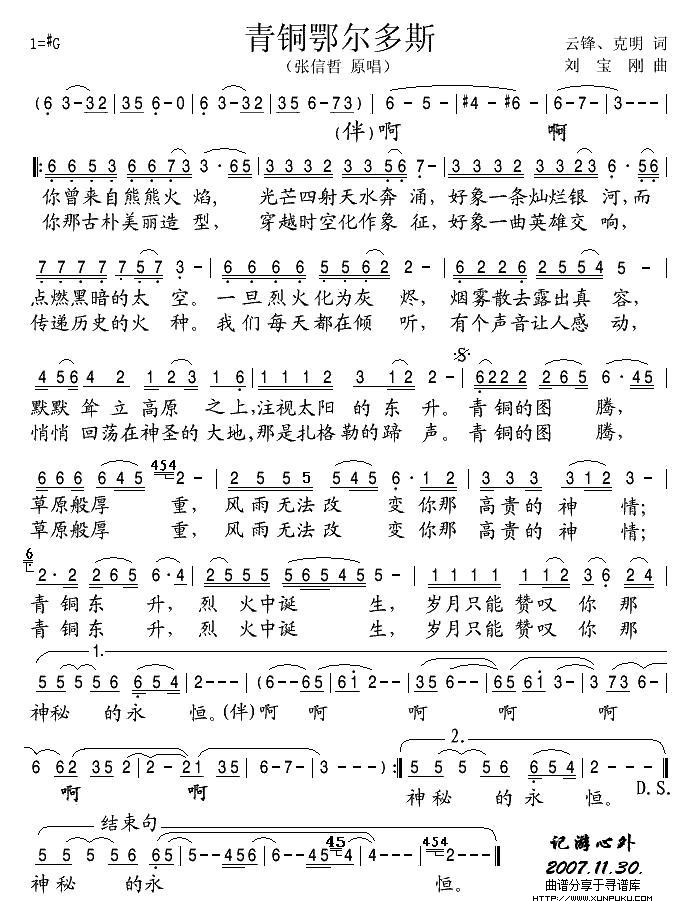 青铜鄂尔多斯
1=#G
（张信哲 原唱）
云锋、克明 词
刘 宝 刚 曲
(6 3-32 | 35 6-0 | 6 3-32 | 35 6-73) | 6 - 5 - | #4 - #6 | 6-7- | 3 - - - |
(伴)啊 啊
6 6 5 3 6 6 73 3 · 65 | 3 3 3 3 3 3 56 7- | 3 3 3 3 3 323 6· 56 |
你曾来自熊熊火 焰， 光芒四射天水奔 涌，好象一条灿烂银 河，而
你那古朴美丽造 型， 穿越时空化作象 征，好象一曲英雄交 响，
7 7 7 7 7 57 3 - | 6 6 6 6 5 562 2 - | 6 2 2 6 2 554 5 - |
点燃黑暗的太 空。一旦烈火化为灰 烬， 烟雾散去露出真 容，
传递历史的火 种。我们每天都在倾 听，有个声音让人感 动，
4 56 4 2 1 2 3 1 6 | 1 1 1 2 3 12 2 - | 6222 265 6· 45 |
默默 耸 立 高原 之上，注视太阳 的 东 升。青铜的图 腾，
悄悄 回荡在神圣的大地，那是扎格勒的蹄 声。青铜的图 腾，
6 6 6 6 45 454 2 - | 2 5 5 5 5 45 6·12 | 3 3 3 312 3- |
草原般厚 重， 风雨无法改 变你那 高贵的神 情；
草原般厚 重， 风雨无法改 变你那 高贵的神 情；
6 2· 2 265 6·4 | 5555 56545 5 - | 1 1 1 1 1 12 3 6 24 |
青 铜东 升， 烈 火中诞 生， 岁月只能 赞叹 你 那
青 铜东 升， 烈 火中诞 生， 岁月只能 赞叹 你 那
1.
5 5 5 5 56 6 54 | 2--- | (6--65 | 61 2-- | 35 6-- | 65 61 | 3--- | 33 30 6-
神秘 的永 恒。(伴)啊 啊 啊 啊 啊
6 62 35 2 | 2 - 21 35 | 6-7- | 3 ---) :| 5 5 5 5 56 6 5 4 | 2 - - - ||
2.
啊 啊 神秘 的永 恒。 D.S.
结束句
5 5 5 5 56 6 5 | 5--456 | 6--- 45 3--- 454 2--- ||
神秘 的永 恒。
记游心外
2007.11.30.
曲谱分享于寻谱库
HTTP://WWW.XUNPUKU.COM